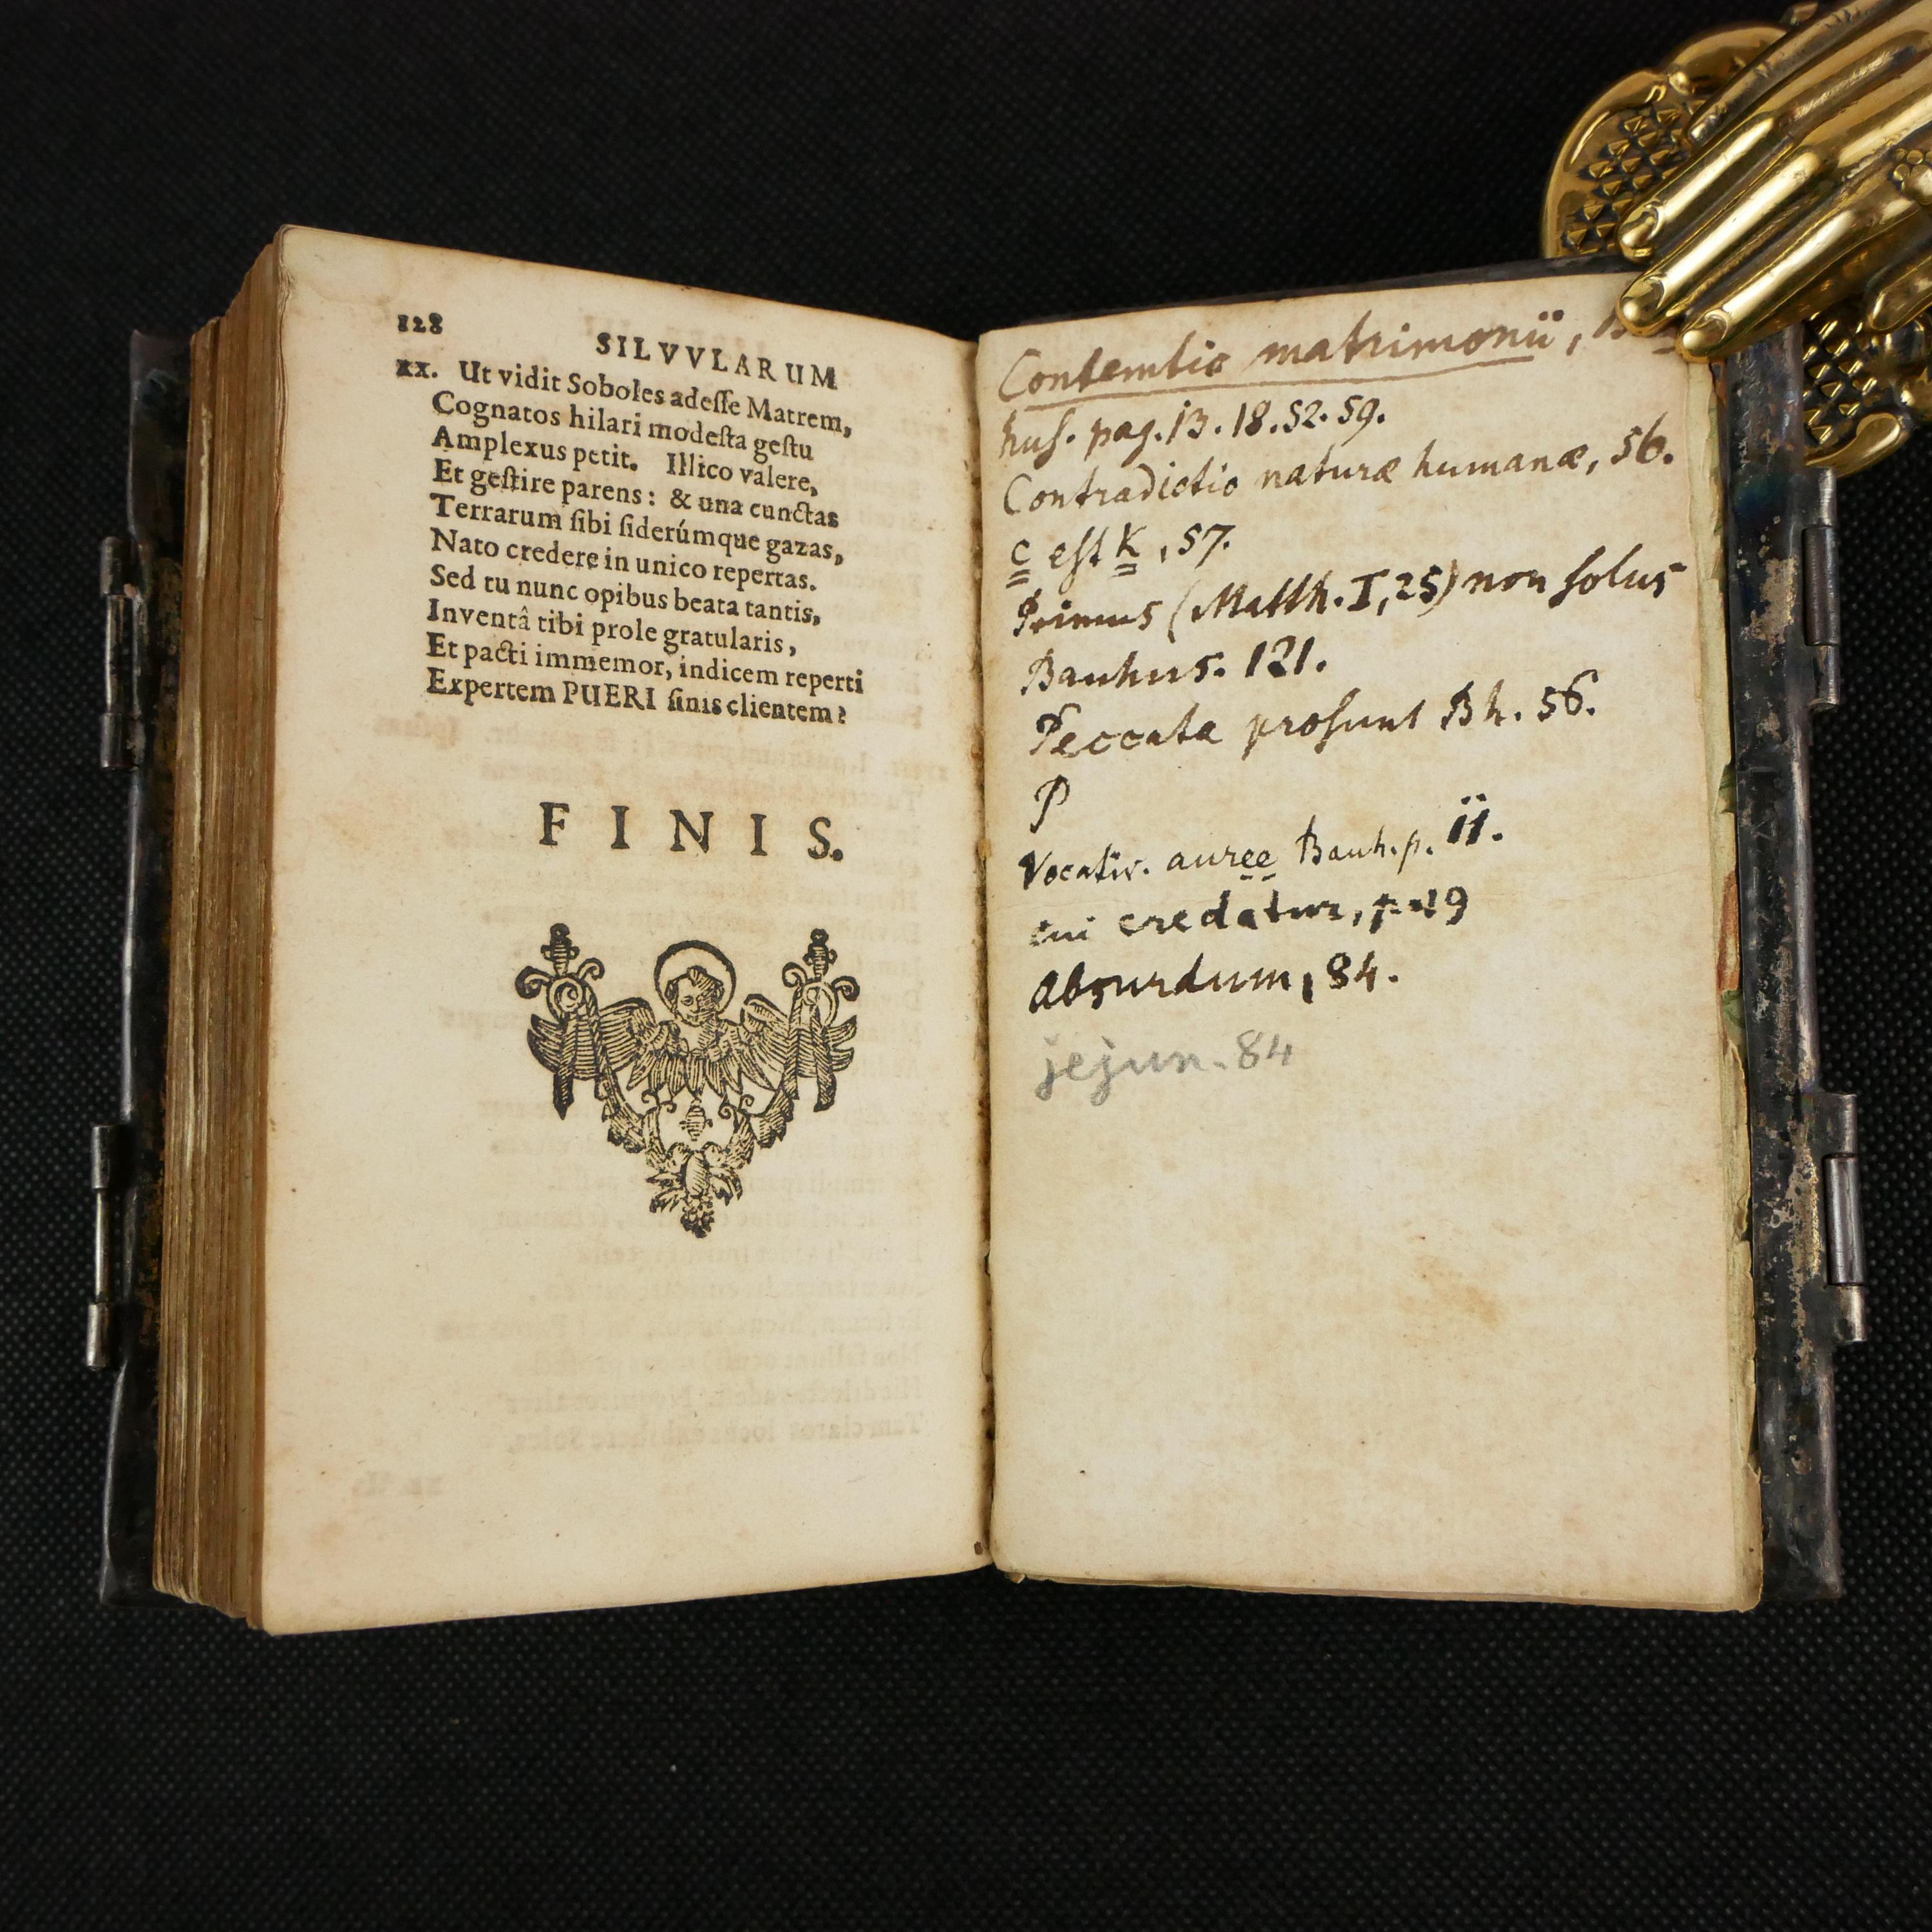 128
SILVVLARUM
xx. Ut vidit Soboles adeſſe Matrem,
Cognatos hilari modeſta geſtu
Amplexus petit. Illico valere,
Et geſtire parens: & una cunctas
Terrarum ſibi ſiderúmque gazas,
Nato credere in unico repertas.
Sed tu nunc opibus beata tantis,
Inventâ tibi prole gratularis,
Et pacti immemor, indicem reperti
Expertem PUERI ſinis clientem?
FINIS.
Contemtio matrimonii,
huſ. pag. 13. 18. 52. 59.
Contradictio naturæ humanæ, 56.
c eſt k, 57.
Primus (Matth. I, 25) non ſolus
Bauhus. 121.
Peccata proſunt Bh. 56.
P
Vocativ. auree Bauh. p. 11.
cui credatur, 19
Absurdum, 84.
jejun. 84